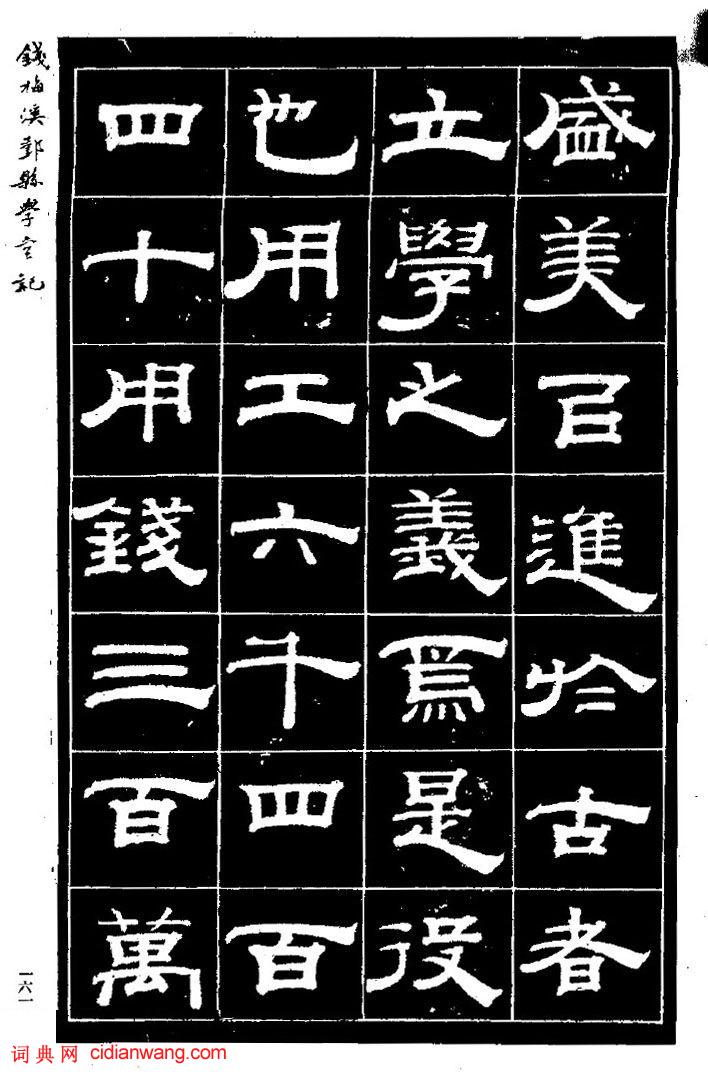 盛美㠯進於古者
立學之義焉是役
也用工六千四百
四十用錢三百萬
錢梅溪鄞縣學宮記
一六一
词典网 cidianwang.com